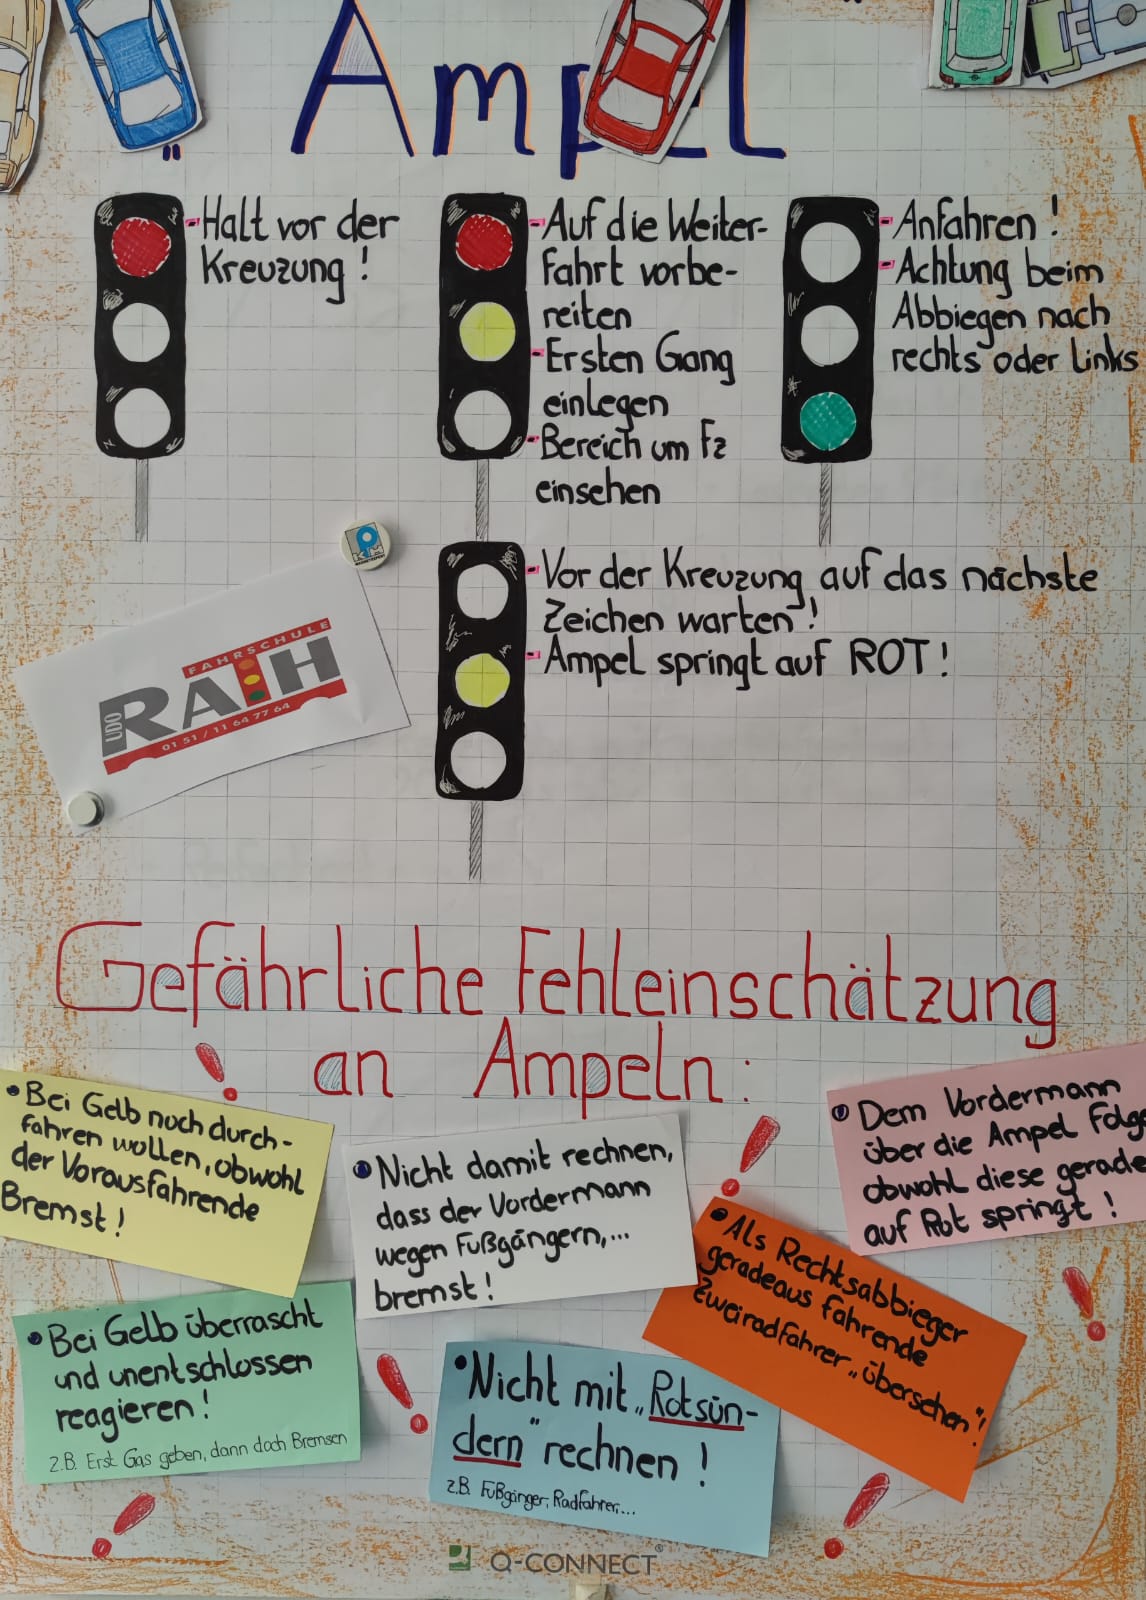 „Ampel"
- Halt vor der
Kreuzung!
- Auf die Weiter-
fahrt vorbe-
reiten
- Ersten Gang
einlegen
- Bereich um Fz
einsehen
- Anfahren!
- Achtung beim
Abbiegen nach
rechts oder links
- Vor der Kreuzung auf das nächste
Zeichen warten!
- Ampel springt auf ROT!
FAHRSCHULE
UDO RATH
01 51 / 11 64 77 64
Gefährliche Fehleinschätzung
an Ampeln:
• Bei Gelb noch durch-
fahren wollen, obwohl
der Vorausfahrende
Bremst!
• Nicht damit rechnen,
dass der Vordermann
wegen Fußgängern,...
bremst!
• Dem Vordermann
über die Ampel Folge
obwohl diese gerade
auf Rot springt!
• Als Rechtsabbieger
geradeaus fahrende
Zweiradfahrer „übersehen"!
• Bei Gelb überrascht
und unentschlossen
reagieren!
z.B. Erst Gas geben, dann doch Bremsen
• Nicht mit „Rotsün-
dern" rechnen!
z.B. Fußgänger, Radfahrer,...
Q-CONNECT®